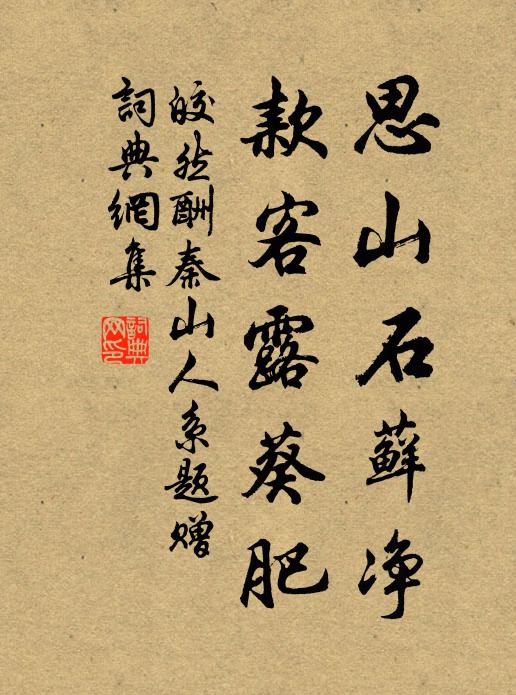 思山石蘚净
款客露葵肥
皎然酬秦山人系題贈
詞典網集
詞典網印